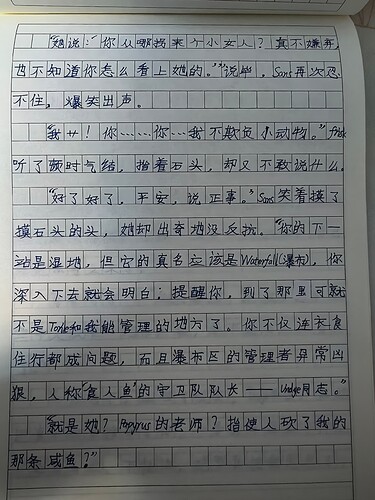 “她说：‘你从哪拐来个小女人？真不嫌弃，
也不知道你怎么看上她的。’”说毕，Sans再次忍
不住，爆笑出声。
“我艹！你……你…我不欺负小动物。”frisk
听了顿时气结，指着石头，却又不敢说什么。
“好了好了，平安，说正事。”Sans笑着摸了
摸石头的头，她却出奇地没反抗。“你的下一
站是湿地，但它的真名应该是Waterfall(瀑布)，你
深入下去就会明白；提醒你，到了那里可就
不是Toriel和我能管理的地方了。你不仅连衣食
住行都成问题，而且瀑布区的管理者异常凶
狠，人称‘食人鱼’的守卫队队长——Undyne同志。”
“就是她？Papyrus的老师？指使人砍了我的
那条咸鱼？”